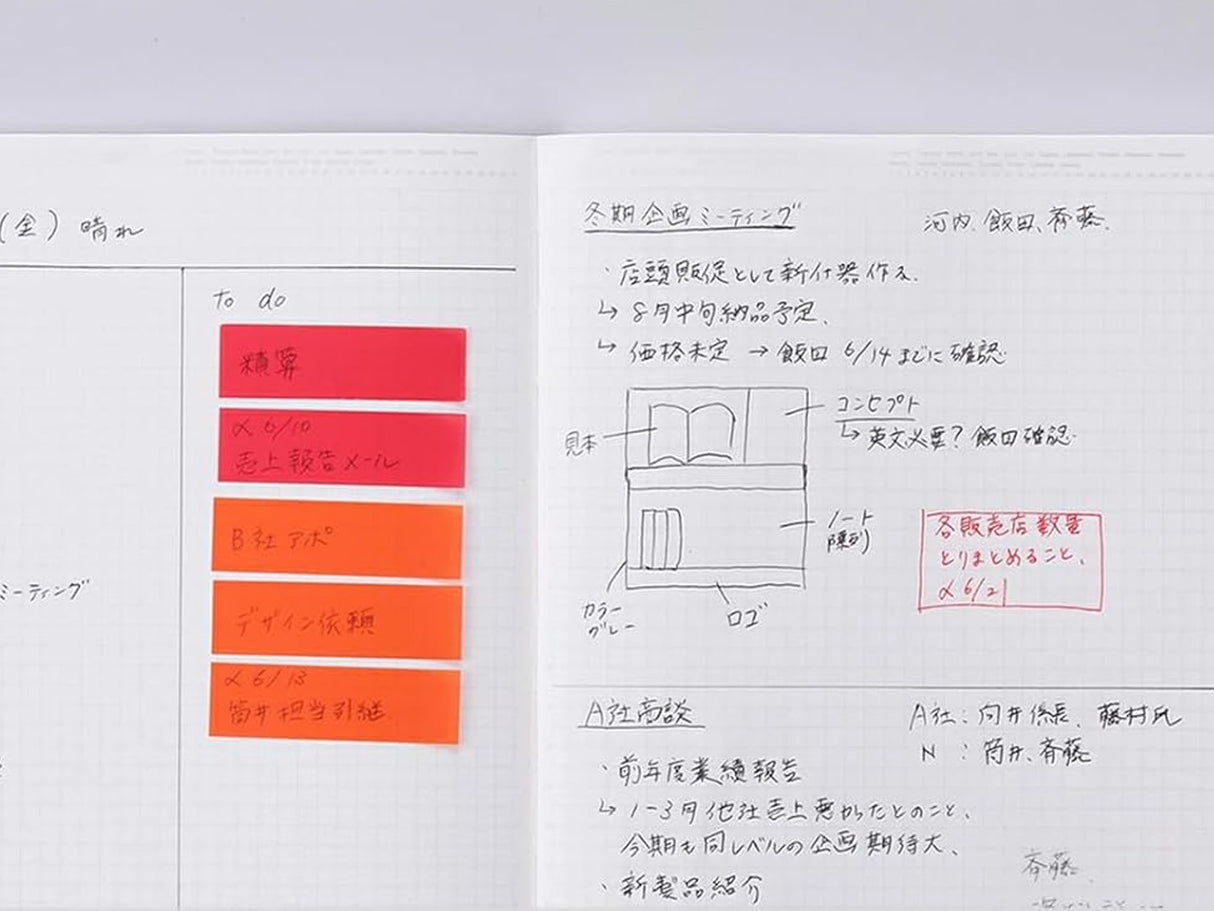 (金) 晴れ
to do
積算
〆6/10
売上報告メール
B社アポ
デザイン依頼
〆6/13
筒井担当引継
ミーティング
冬期企画ミーティング
河内、飯田、斉藤、
・店頭販促として新什器作る、
↳ 8月中旬納品予定、
↳ 価格未定 → 飯田 6/14までに確認
見本
コンセプト
↳ 英文必要? 飯田確認
ノート
陳列
カラー
グレー
ロゴ
各販売店数量
とりまとめること、
〆6/21
A社商談
A社:向井係長、藤村氏
N :筒井、斉藤
・前年度業績報告
↳ 1-3月他社売上悪かったとのこと、
今期も同レベルの企画期待大、
・新製品紹介
斉藤、